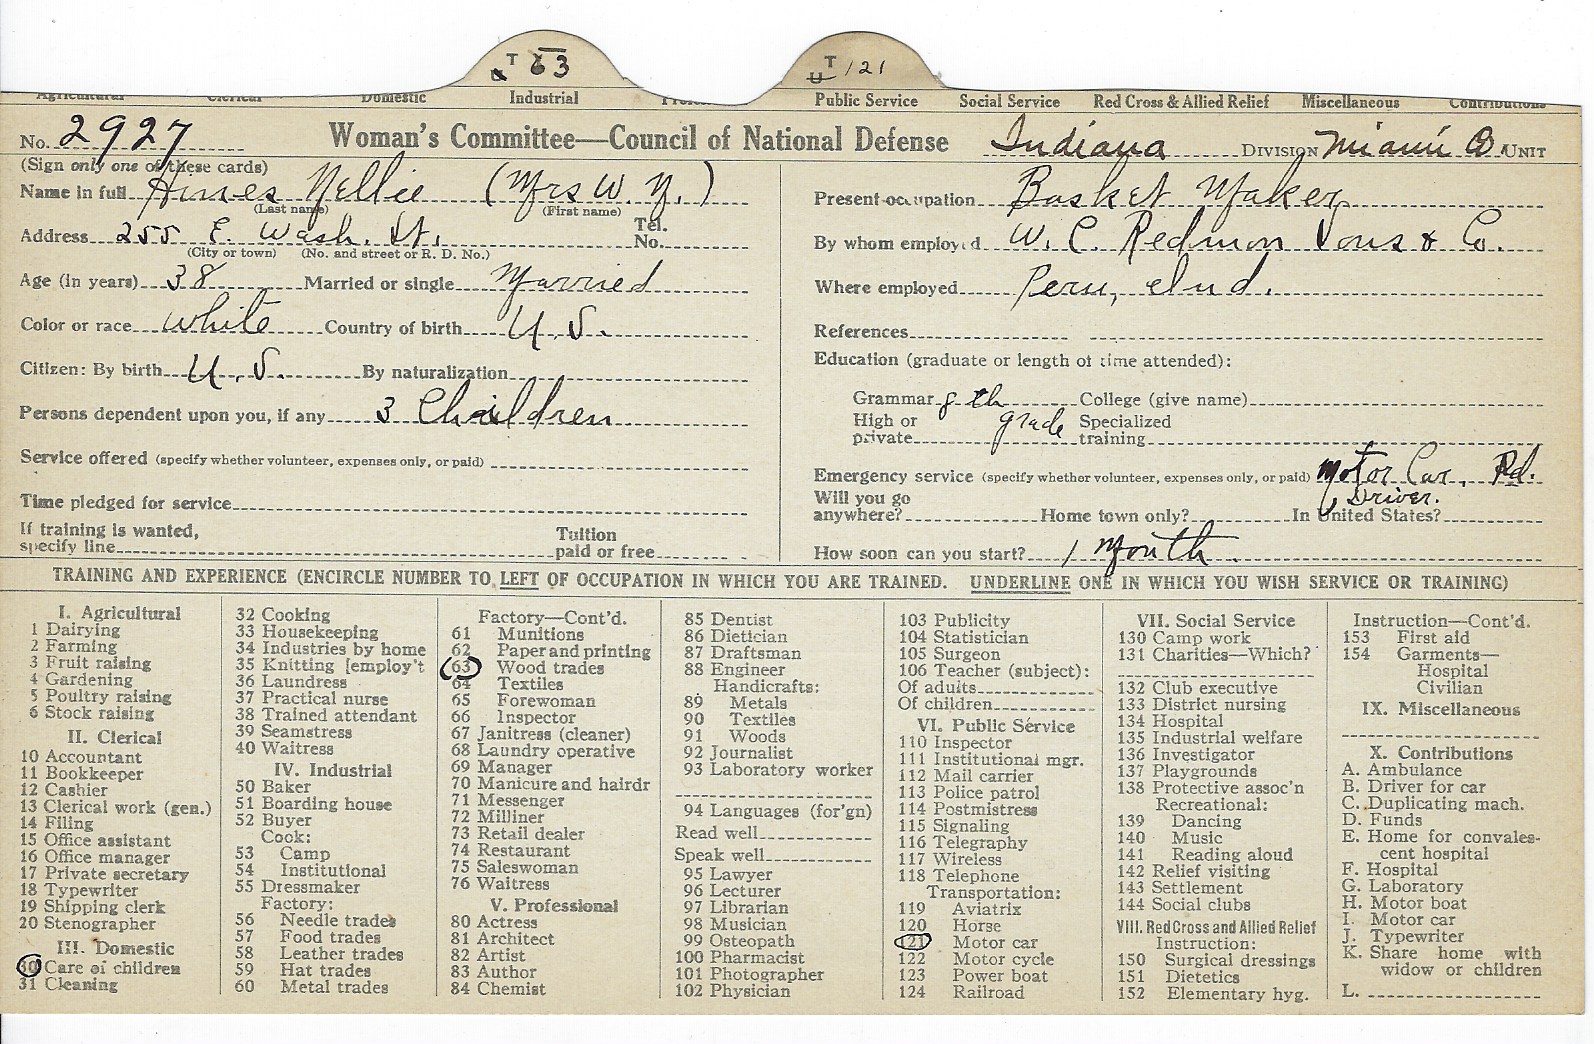 T 63
T U 121
Agricultural Clerical Domestic Industrial Public Service Social Service Red Cross & Allied Relief Miscellaneous Contributions
No. 2927 Woman's Committee—Council of National Defense Indiana DIVISION Miami Co. UNIT
(Sign only one of these cards)
Name in full Hines Nellie (Mrs W. N.)
(Last name) (First name)
Address 255 E. Wash. St. Tel. No.
(City or town) (No. and street or R. D. No.)
Age (in years) 38 Married or single Married
Color or race white Country of birth U. S.
Citizen: By birth U. S. By naturalization
Persons dependent upon you, if any 3 Children
Service offered (specify whether volunteer, expenses only, or paid)
Time pledged for service
If training is wanted,
specify line Tuition paid or free
Present occupation Basket Maker
By whom employed W. C. Redmon Sons & Co.
Where employed Peru, Ind.
References
Education (graduate or length of time attended):
Grammar 8th College (give name)
High or private grade Specialized training
Emergency service (specify whether volunteer, expenses only, or paid) Motor Car, Pd.
Driver.
Will you go anywhere? Home town only? In United States?
How soon can you start? 1 Month.
TRAINING AND EXPERIENCE (ENCIRCLE NUMBER TO LEFT OF OCCUPATION IN WHICH YOU ARE TRAINED. UNDERLINE ONE IN WHICH YOU WISH SERVICE OR TRAINING)
I. Agricultural
1 Dairying
2 Farming
3 Fruit raising
4 Gardening
5 Poultry raising
6 Stock raising
II. Clerical
10 Accountant
11 Bookkeeper
12 Cashier
13 Clerical work (gen.)
14 Filing
15 Office assistant
16 Office manager
17 Private secretary
18 Typewriter
19 Shipping clerk
20 Stenographer
III. Domestic
30 Care of children
31 Cleaning
32 Cooking
33 Housekeeping
34 Industries by home
35 Knitting [employ't
36 Laundress
37 Practical nurse
38 Trained attendant
39 Seamstress
40 Waitress
IV. Industrial
50 Baker
51 Boarding house
52 Buyer
Cook:
53 Camp
54 Institutional
55 Dressmaker
Factory:
56 Needle trades
57 Food trades
58 Leather trades
59 Hat trades
60 Metal trades
Factory—Cont'd.
61 Munitions
62 Paper and printing
63 Wood trades
64 Textiles
65 Forewoman
66 Inspector
67 Janitress (cleaner)
68 Laundry operative
69 Manager
70 Manicure and hairdr
71 Messenger
72 Milliner
73 Retail dealer
74 Restaurant
75 Saleswoman
76 Waitress
V. Professional
80 Actress
81 Architect
82 Artist
83 Author
84 Chemist
85 Dentist
86 Dietician
87 Draftsman
88 Engineer
Handicrafts:
89 Metals
90 Textiles
91 Woods
92 Journalist
93 Laboratory worker
94 Languages (for'gn)
Read well
Speak well
95 Lawyer
96 Lecturer
97 Librarian
98 Musician
99 Osteopath
100 Pharmacist
101 Photographer
102 Physician
103 Publicity
104 Statistician
105 Surgeon
106 Teacher (subject):
Of adults
Of children
VI. Public Service
110 Inspector
111 Institutional mgr.
112 Mail carrier
113 Police patrol
114 Postmistress
115 Signaling
116 Telegraphy
117 Wireless
118 Telephone
Transportation:
119 Aviatrix
120 Horse
121 Motor car
122 Motor cycle
123 Power boat
124 Railroad
VII. Social Service
130 Camp work
131 Charities—Which?
132 Club executive
133 District nursing
134 Hospital
135 Industrial welfare
136 Investigator
137 Playgrounds
138 Protective assoc'n
Recreational:
139 Dancing
140 Music
141 Reading aloud
142 Relief visiting
143 Settlement
144 Social clubs
VIII. Red Cross and Allied Relief
Instruction:
150 Surgical dressings
151 Dietetics
152 Elementary hyg.
Instruction—Cont'd.
153 First aid
154 Garments—
Hospital
Civilian
IX. Miscellaneous
X. Contributions
A. Ambulance
B. Driver for car
C. Duplicating mach.
D. Funds
E. Home for convales-
cent hospital
F. Hospital
G. Laboratory
H. Motor boat
I. Motor car
J. Typewriter
K. Share home with
widow or children
L.